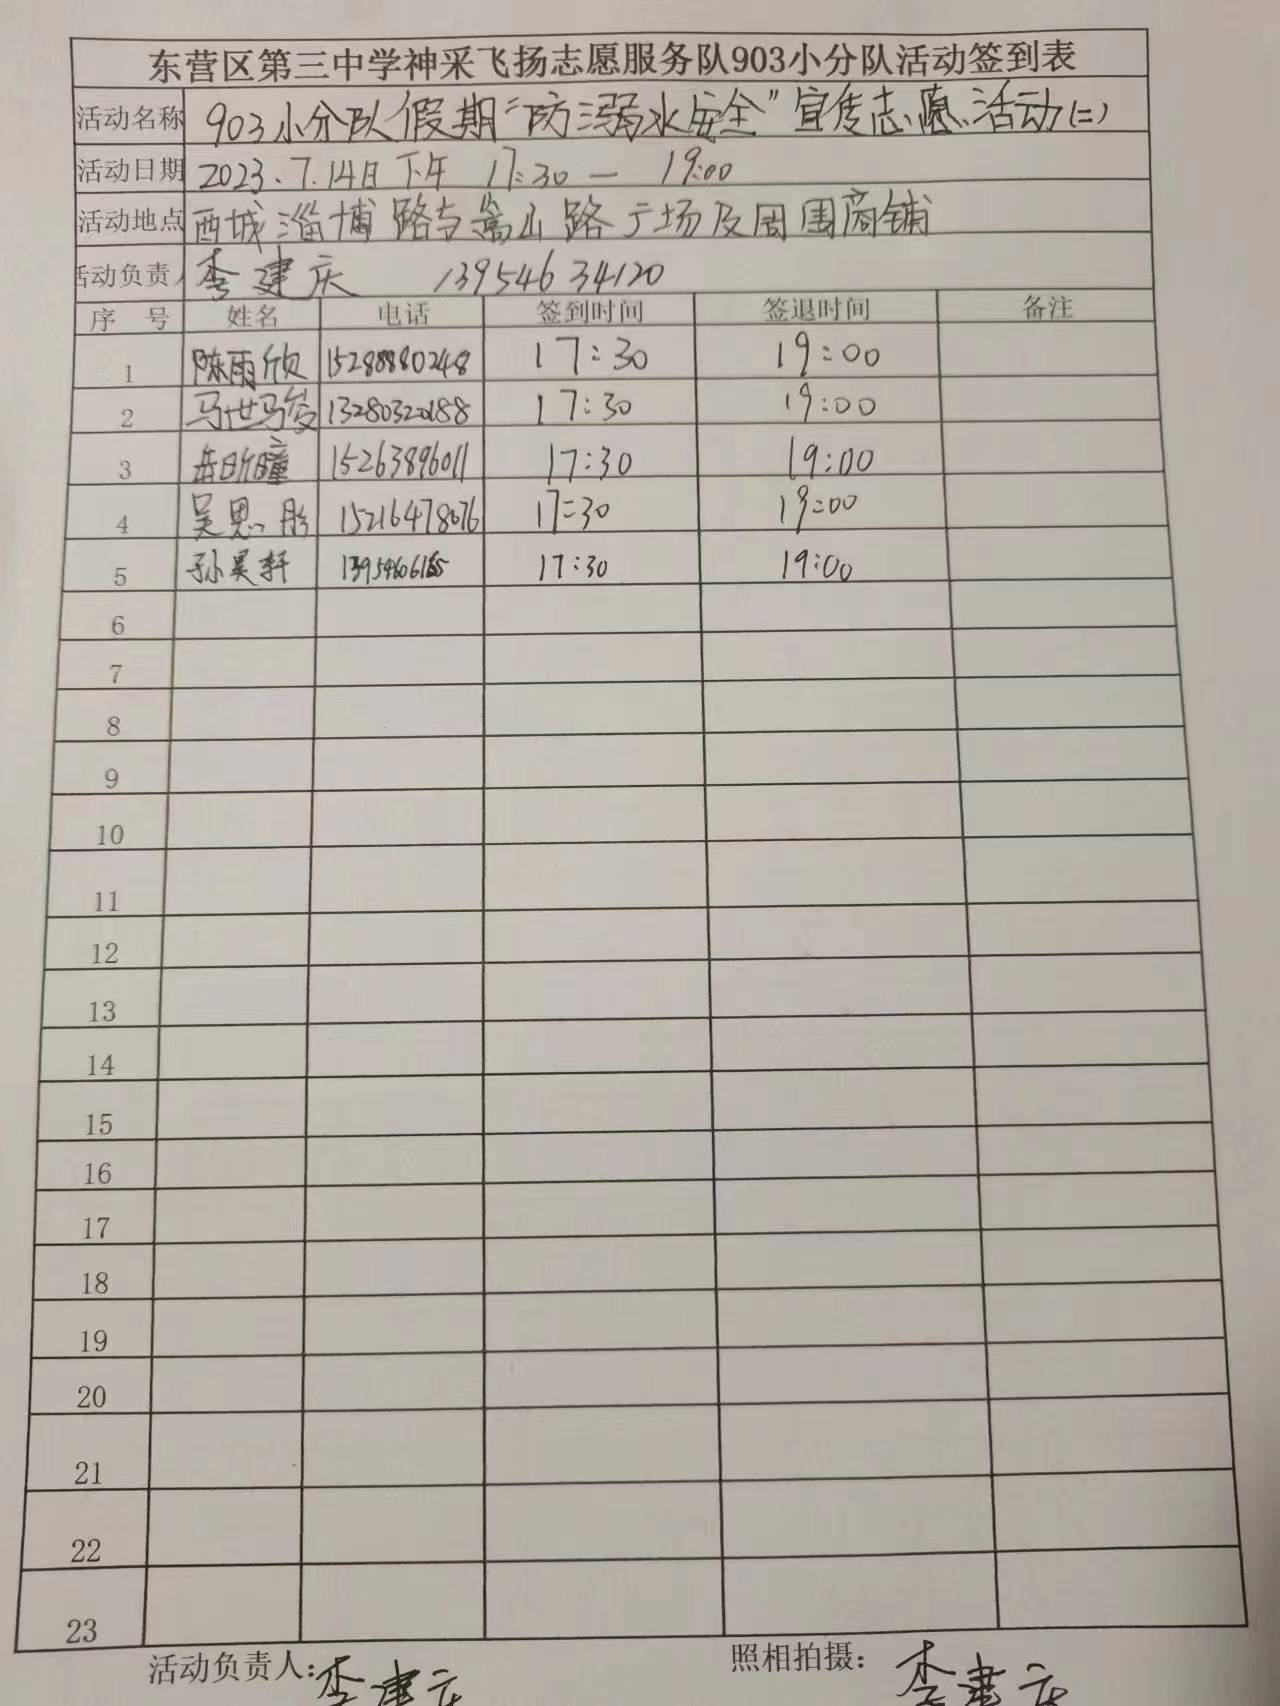 东营区第三中学神采飞扬志愿服务队903小分队活动签到表
活动名称 903小分队假期“防溺水安全”宣传志愿活动(二)
活动日期 2023.7.14日下午 17:30 — 19:00
活动地点 西城淄博路与嵩山路广场及周围商铺
活动负责人 李建庆 13954634120
序 号 姓名 电话 签到时间 签退时间 备注
1 陈雨欣 15288880248 17:30 19:00
2 马世骏 13280320188 17:30 19:00
3 岳昕瞳 15263896011 17:30 19:00
4 吴思彤 15216478076 17:30 19:00
5 孙昊轩 17:30 19:00
6
7
8
9
10
11
12
13
14
15
16
17
18
19
20
21
22
23
活动负责人：李建庆 照相拍摄：李建庆